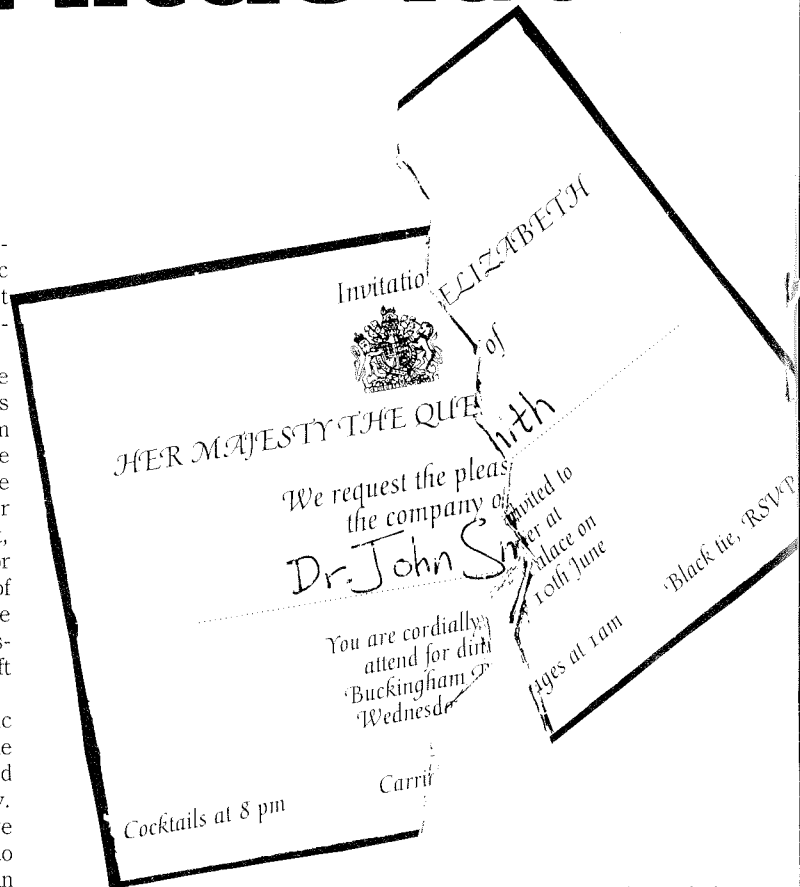 Invitatio
HER MAJESTY THE QUE
We request the pleas
the company o
Dr. John Sm
You are cordially
attend for din
Buckingham P
Wednesda
Carri
Cocktails at 8 pm
ELIZABETH
of
ith
invited to
er at
alace on
10th June
Black tie, RSVP
ages at 1am